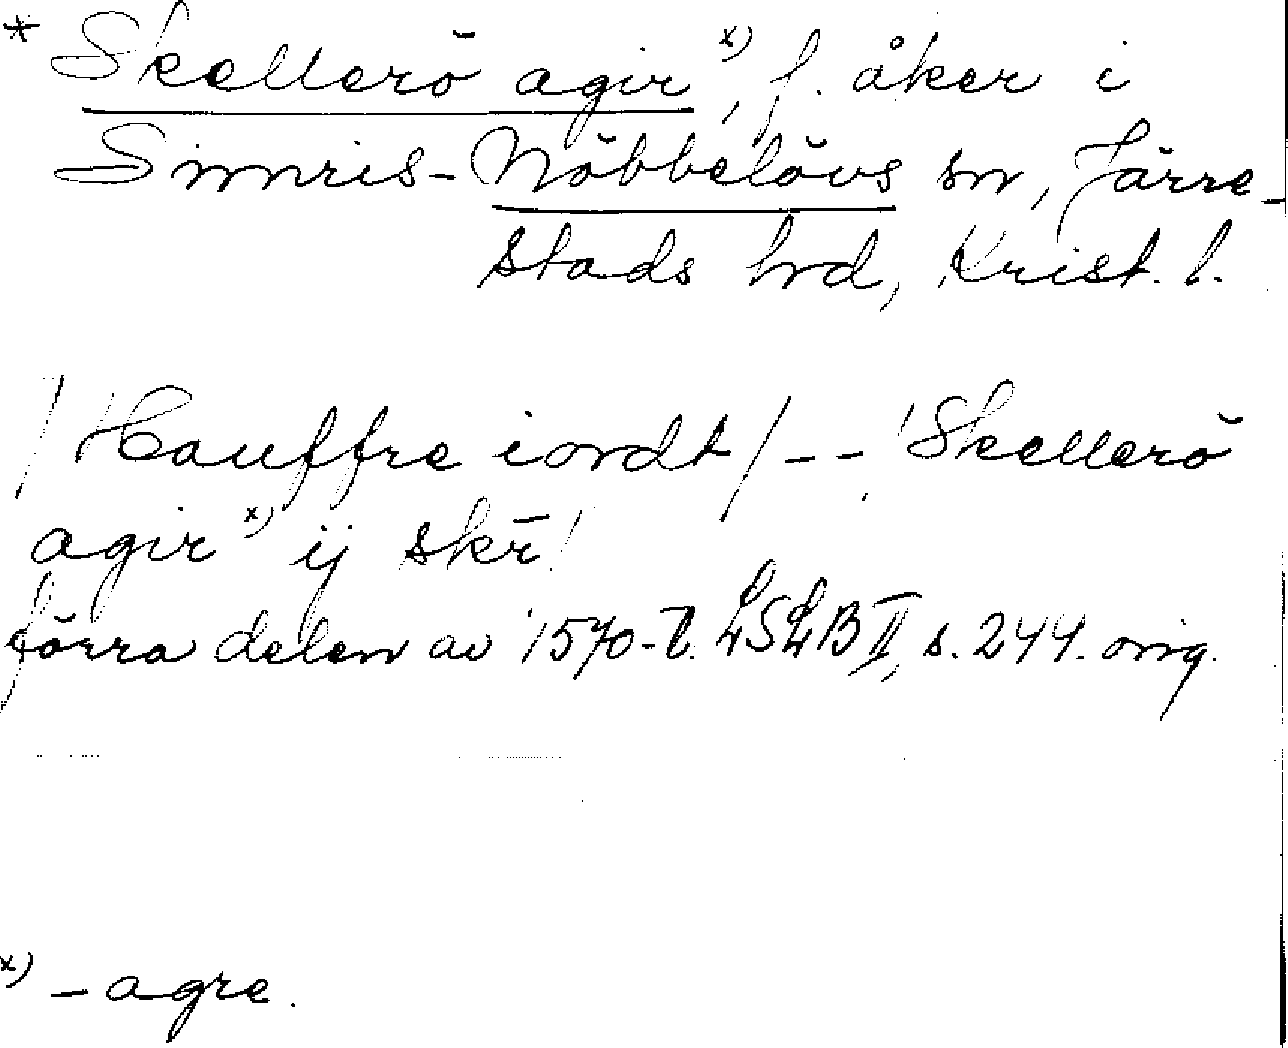 * Skellerö agir x), f. åker i
Simris-Nöbbelövs sn, Järre-
stads hrd, Krist. l.
/Hauffre iordt/ -- Skellerö
agir x) ij skr̄!
förra delen av 1570-t. LSLB II, s. 244. orig.
x) -agre.